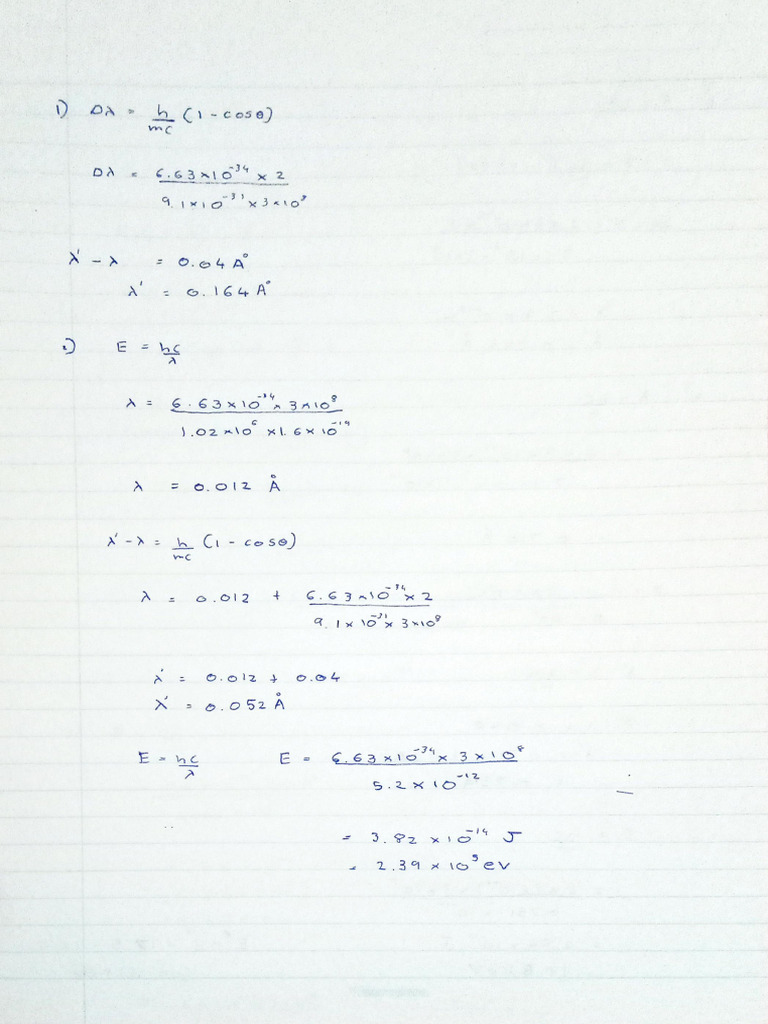 1) Δλ = h/mc (1 - cosθ)
Δλ = 6.63 × 10⁻³⁴ × 2 / 9.1 × 10⁻³¹ × 3 × 10⁸
λ' - λ = 0.04 Å
λ' = 0.164 Å
2) E = hc/λ
λ = 6.63 × 10⁻³⁴ × 3 × 10⁸ / 1.02 × 10⁶ × 1.6 × 10⁻¹⁹
λ = 0.012 Å
λ' - λ = h/mc (1 - cosθ)
λ = 0.012 + 6.63 × 10⁻³⁴ × 2 / 9.1 × 10⁻³¹ × 3 × 10⁸
λ' = 0.012 + 0.04
λ' = 0.052 Å
E = hc/λ E = 6.63 × 10⁻³⁴ × 3 × 10⁸ / 5.2 × 10⁻¹²
= 3.82 × 10⁻¹⁴ J
= 2.39 × 10⁵ eV